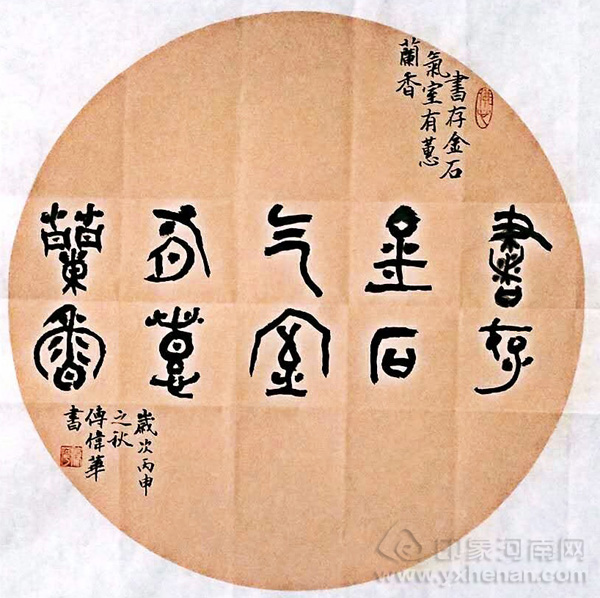 書存金石
氣室有蕙
蘭香
書存
金石
气室
有蕙
蘭香
歲次丙申
之秋
傅偉華
書
印象河南网
www.yxhenan.com